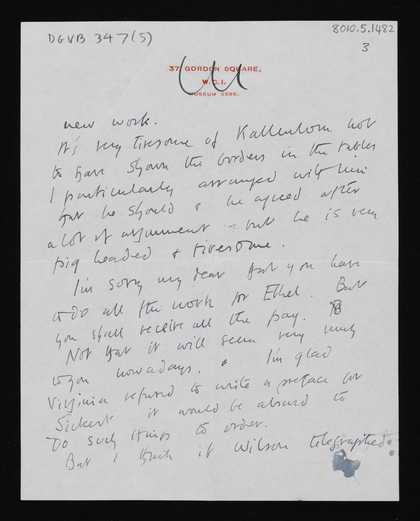 DGVB 347(5)
8010.5.1482
3
37, GORDON SQUARE,
W.C.1.
MUSEUM
new work.
It's very tiresome of Kallenborn not
to have shown the borders in the tables
I particularly arranged with him
that he should & he agreed after
a lot of argument - but he is very
pig headed & tiresome.
I'm sorry my dear that you have
to do all the work for Ethel. But
you shall receive all the pay.
Not that it will seem very much
to you nowadays. I'm glad
Virginia refused to write a preface for
Sickert it would be absurd to
do such things to order.
But I think if Wilson telegraphed